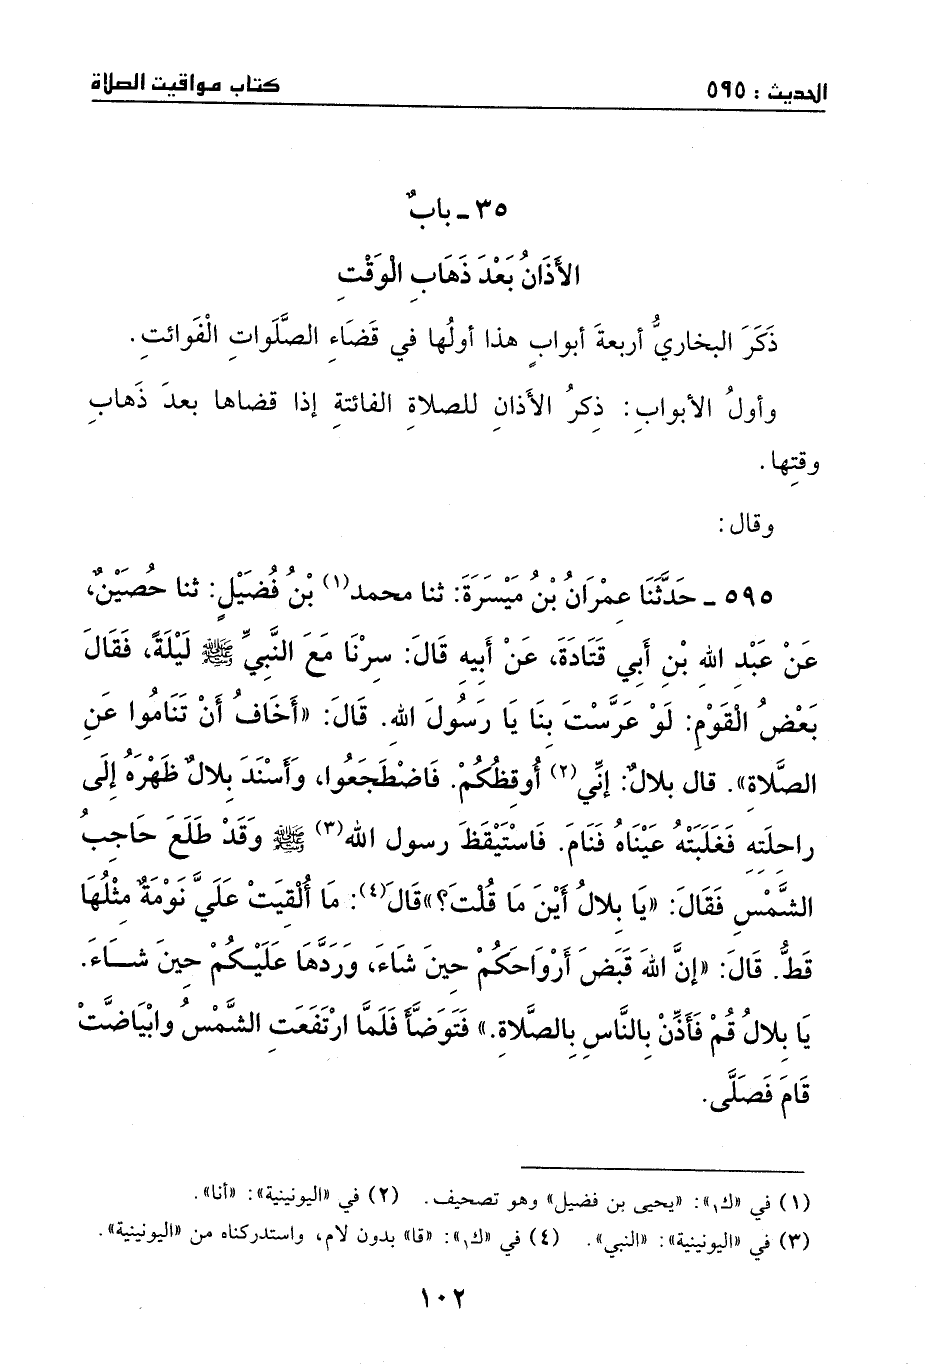 الحديث : ٥٩٥
كتاب مواقيت الصلاة
٣٥ ـ بابٌ
الأَذَانُ بَعْدَ ذَهَابِ الْوَقْتِ
ذَكَرَ البخاريُّ أربعةَ أبوابٍ هذا أولُها في قَضَاءِ الصَّلَواتِ الْفَوائتِ.
وأولُ الأبوابِ: ذِكرُ الأَذانِ للصلاةِ الفائتةِ إذا قضاها بعدَ ذهابِ
وقتِها.
وقال:
٥٩٥ ـ حَدَّثَنَا عِمْرَانُ بْنُ مَيْسَرَةَ: ثنا محمد(١) بْنُ فُضَيْلٍ: ثنا حُصَيْنٌ،
عَنْ عَبْدِ اللهِ بْنِ أَبِي قَتَادَةَ، عَنْ أَبِيهِ قَالَ: سِرْنَا مَعَ النَّبِيِّ ﷺ لَيْلَةً، فَقَالَ
بَعْضُ الْقَوْمِ: لَوْ عَرَّسْتَ بِنَا يَا رَسُولَ اللهِ. قَالَ: «أَخَافُ أَنْ تَنَامُوا عَنِ
الصَّلَاةِ». قال بلالٌ: إنِّي(٢) أُوقِظُكُمْ. فَاضْطَجَعُوا، وَأَسْنَدَ بِلالٌ ظَهْرَهُ إِلَى
راحِلَتِهِ فَغَلَبَتْهُ عَيْنَاهُ فَنَامَ. فَاسْتَيْقَظَ رسول الله(٣) ﷺ وَقَدْ طَلَعَ حَاجِبُ
الشَّمْسِ فَقَالَ: «يَا بِلالُ أَيْنَ مَا قُلْتَ؟»قَالَ(٤): مَا أُلْقِيَتْ عَلَيَّ نَوْمَةٌ مِثْلُهَا
قَطُّ. قَالَ: «إنَّ اللهَ قَبَضَ أَرْوَاحَكُمْ حِينَ شَاءَ، وَرَدَّهَا عَلَيْكُمْ حِينَ شَـاءَ.
يَا بِلالُ قُمْ فَأَذِّنْ بِالنَّاسِ بِالصَّلاةِ.» فَتَوَضَّأَ فَلَمَّا ارْتَفَعَتِ الشَّمْسُ وابْيَاضَّتْ
قَامَ فَصَلَّى.
(١) في «ك١»: «يحيى بن فضيل» وهو تصحيف. (٢) في «اليونينية»: «أنا».
(٣) في «اليونينية»: «النبي». (٤) في «ك١»: «قا» بدون لام، واستدركناه من «اليونينية».
١٠٢